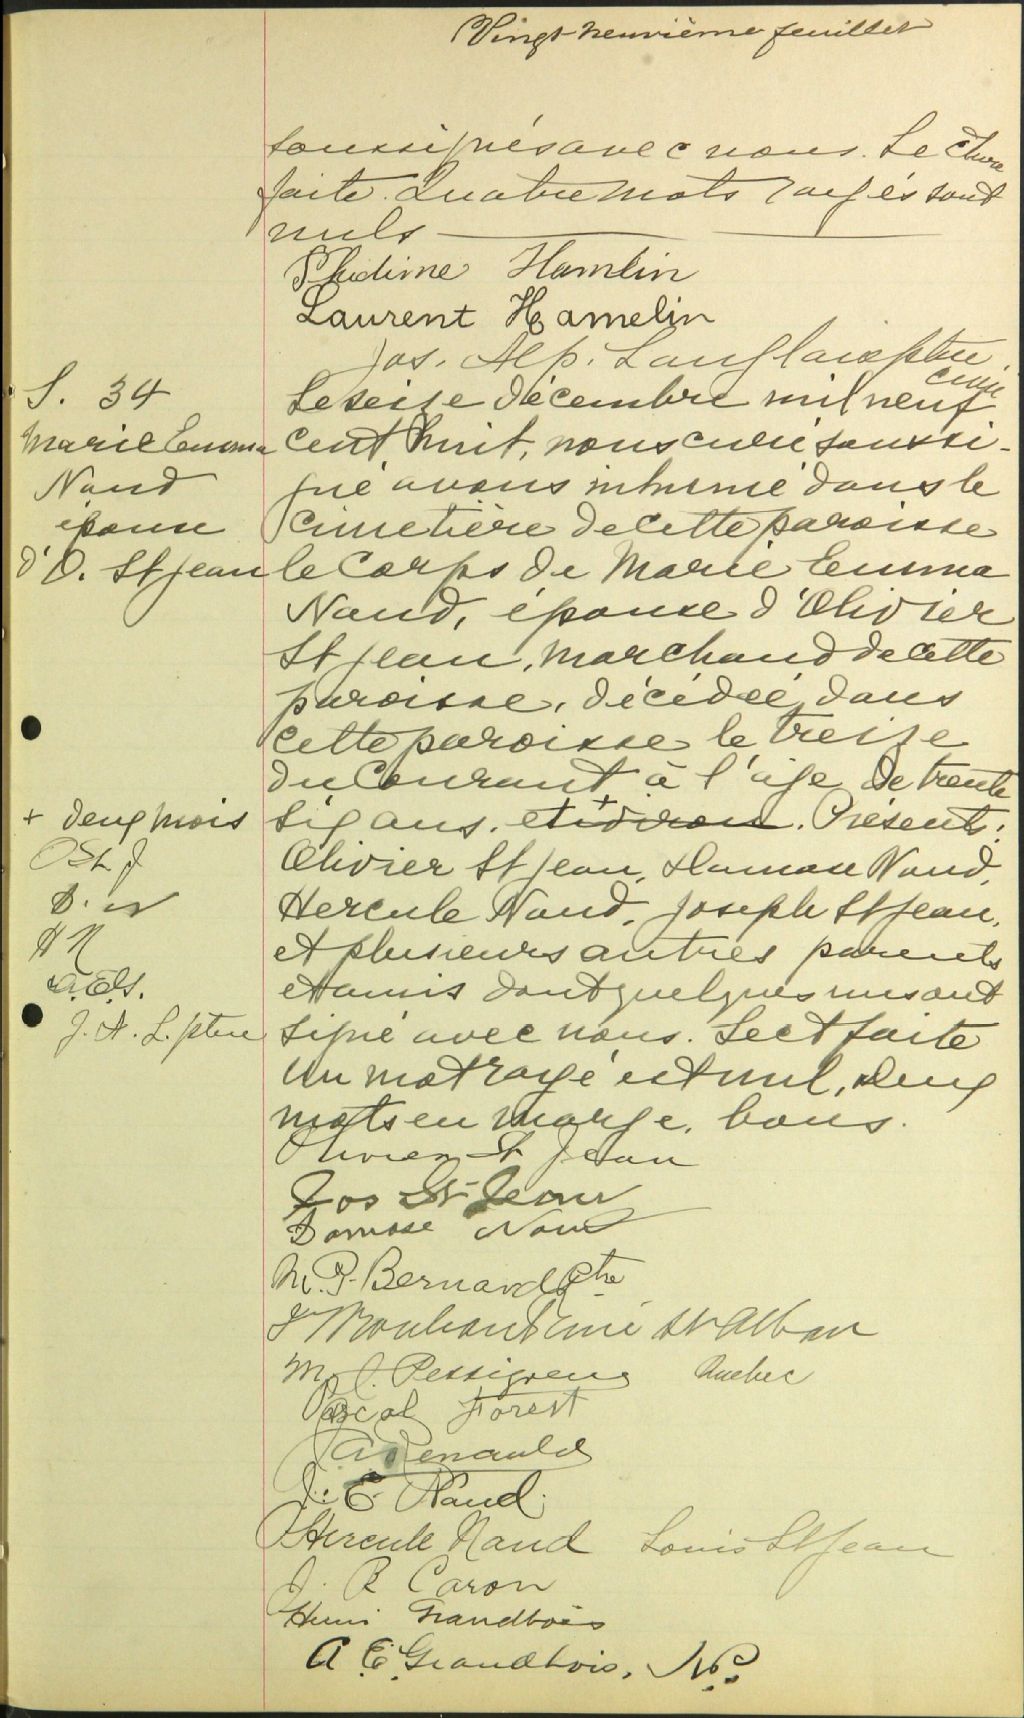 Vingt-neuvième feuillet
soussignés avec nous. Lecture
faite. Quatre mots rayés sont
nuls
Phidime Hamlin
Laurent Hamelin
Jos. Alp. Langlais ptre
curé
S. 34
Marie Emma
Naud
épouse
d'O. St Jean
Le seize décembre mil neuf
cent huit, nous curé soussi-
gné avons inhumé dans le
cimetière de cette paroisse
le corps de Marie Emma
Naud, épouse d'Olivier
St Jean, marchand de cette
paroisse, décédée dans
cette paroisse le treize
du courant à l'age de trente
six ans. et + environ. Présents:
+ deux mois
O St J
D. N
H N
J. A. L. ptre
Olivier St Jean, Damase Naud,
Hercule Naud, Joseph St Jean,
et plusieurs autres parents
et amis dont quelques uns ont
signé avec nous. Lect faite
Un mot rayé est nul, deux
mots en marge, bons.
Olivier St Jean
Jos St-Jean
Damase Naud
M. P. Bernard Ptre
curé St Alban
Quebec
Pascal Forest
J A Renauld
J. E. Naud.
Hercule Naud Louis St Jean
J. B Caron
Henri Grandbois
A. E. Grandbois, N.P.